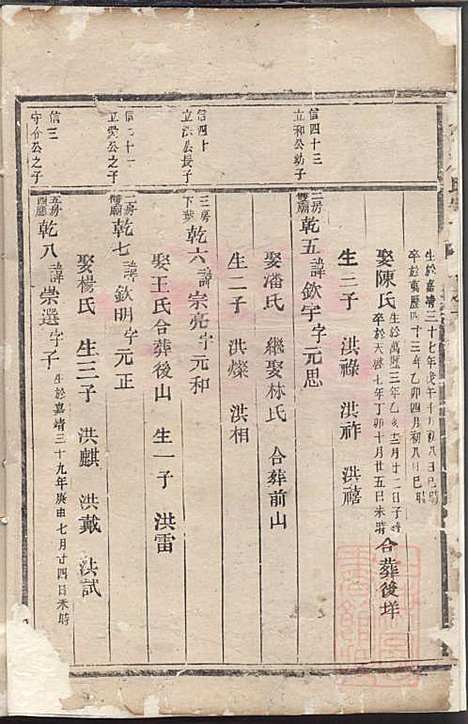 生於嘉靖三十七年戊午十月初八日巳時
卒於萬曆四十三年乙卯四月初八日巳時
娶陳氏 生於萬曆三年乙亥三月廿二日子時 卒於天啟七年丁卯十月廿五日未時 合葬後垟
生三子 洪祿 洪祚 洪禧
信四十三
立和公幼子
二房
雙廟 乾五 諱欽宇 字元思
娶潘氏 繼娶林氏 合葬前山
生二子 洪燦 洪相
信四十
立洪公長子
三房
下葉 乾六 諱宗亮 字元和
娶王氏合葬後山 生一子 洪雷
立愛公之子
二房
雙廟 乾七 諱欽明 字元正
娶楊氏 生三子 洪麒 洪戴 洪試
信三
守介公之子
五房
四廳 乾八 諱崇選 字子 生於嘉靖三十九年庚申七月廿四日未時